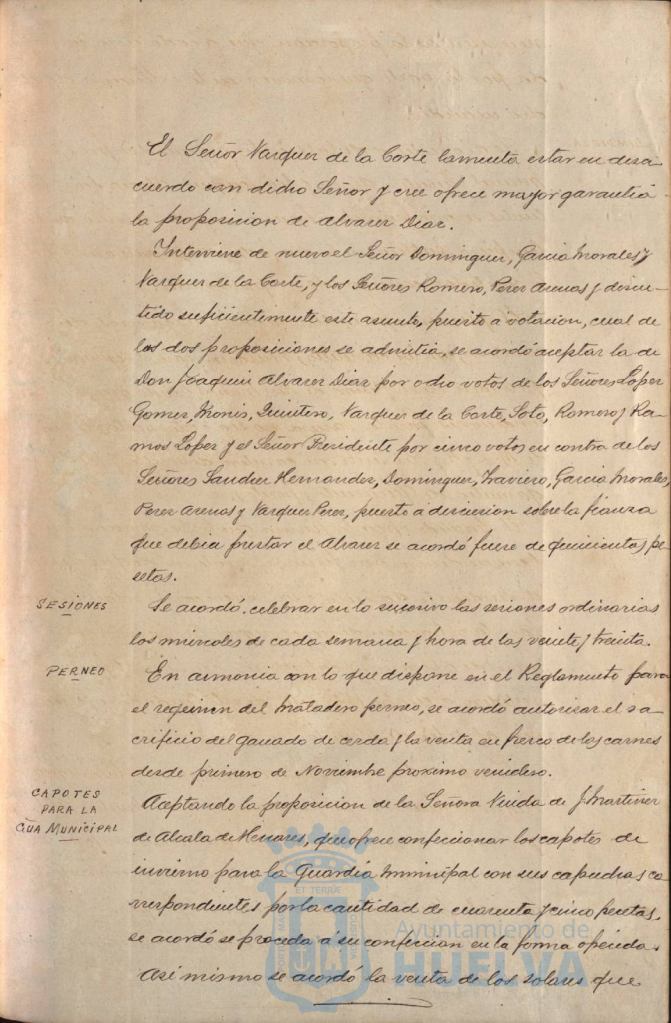 El Señor Vazquez de la Corte lamenta estar en desa
cuerdo con dicho Señor y cree ofrece mayor garantia
la proposicion de Alvarez Diaz.
Interviene de nuevo el Señor Dominguez, Garcia Morales y
Vazquez de la Corte, y los Señores Romero, Perez Arenas y discu-
tido suficientemente este asunto, puesto a votacion, cual de
las dos proposiciones se admitia, se acordó aceptar la de
Don Joaquin Alvarez Diaz por ocho votos de los Señores López
Gomez, Monis, Quintero, Vazquez de la Corte, Soto, Romero y Ra-
mos Lopez y el Señor Presidente por cinco votos en contra de los
Señores Sanchez Hernandez, Dominguez, Traviero, Garcia Morales,
Perez Arenas y Vazquez Perez, puesto a discusion sobre la fianza
que debia prestar el Alvarez se acordó fuese de quinientas pe-
setas.
SESIONES
Se acordó celebrar en lo sucesivo las sesiones ordinarias
los miercoles de cada semana y hora de las veinte y treinta.
PERNEO
En armonia con lo que dispone en el Reglamento para
el regimen del Matadero perneo, se acordó autorizar el sa
crificio del ganado de cerda y la venta en fresco de las carnes
desde primero de Noviembre proximo venidero.
CAPOTES
PARA LA
GUA MUNICIPAL
Aceptando la proposicion de la Señora Viuda de J. Martinez
de Alcala de Henares, que ofrece confeccionar los capotes de
invierno para la Guardia Municipal con sus capuchas co
rrespondientes por la cantidad de cuarenta y cinco pesetas,
se acordó se proceda á su confeccion en la forma ofrecida.
Asi mismo se acordó la venta de los solares que
ET TERRAE
Ayuntamiento de
HUELVA